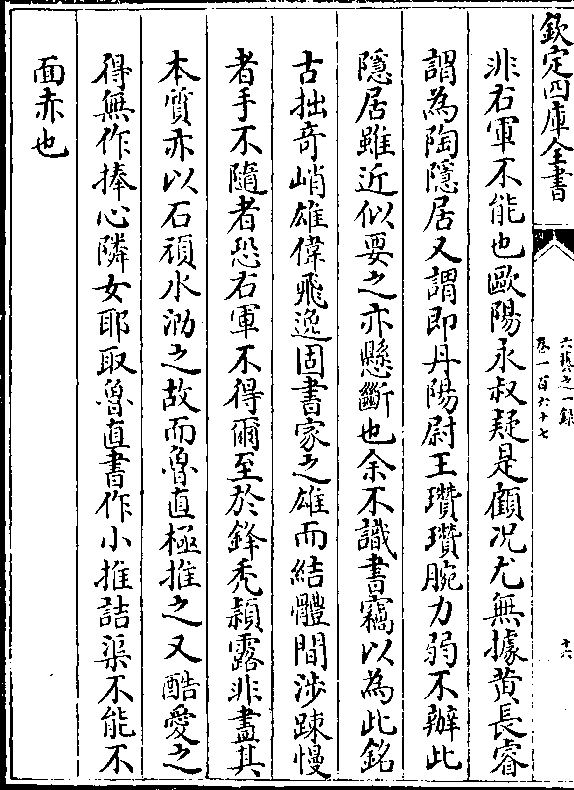 欽定四庫全書
六藝之一錄
卷一百六十七
十六
非右軍不能也歐陽永叔疑是顧况尤無據黄長睿
謂為陶隱居又謂即丹陽尉王瓚瓚腕力弱不辦此
隱居雖近似要之亦懸斷也余不識書竊以為此銘
古拙奇峭雄偉飛逸固書家之雄而結體間涉踈慢
者手不隨者恐右軍不得爾至於鋒秃穎露非盡其
本質亦以石頑水泐之故而魯直極推之又酷愛之
得無作捧心隣女耶取魯直書作小推詰渠不能不
面赤也